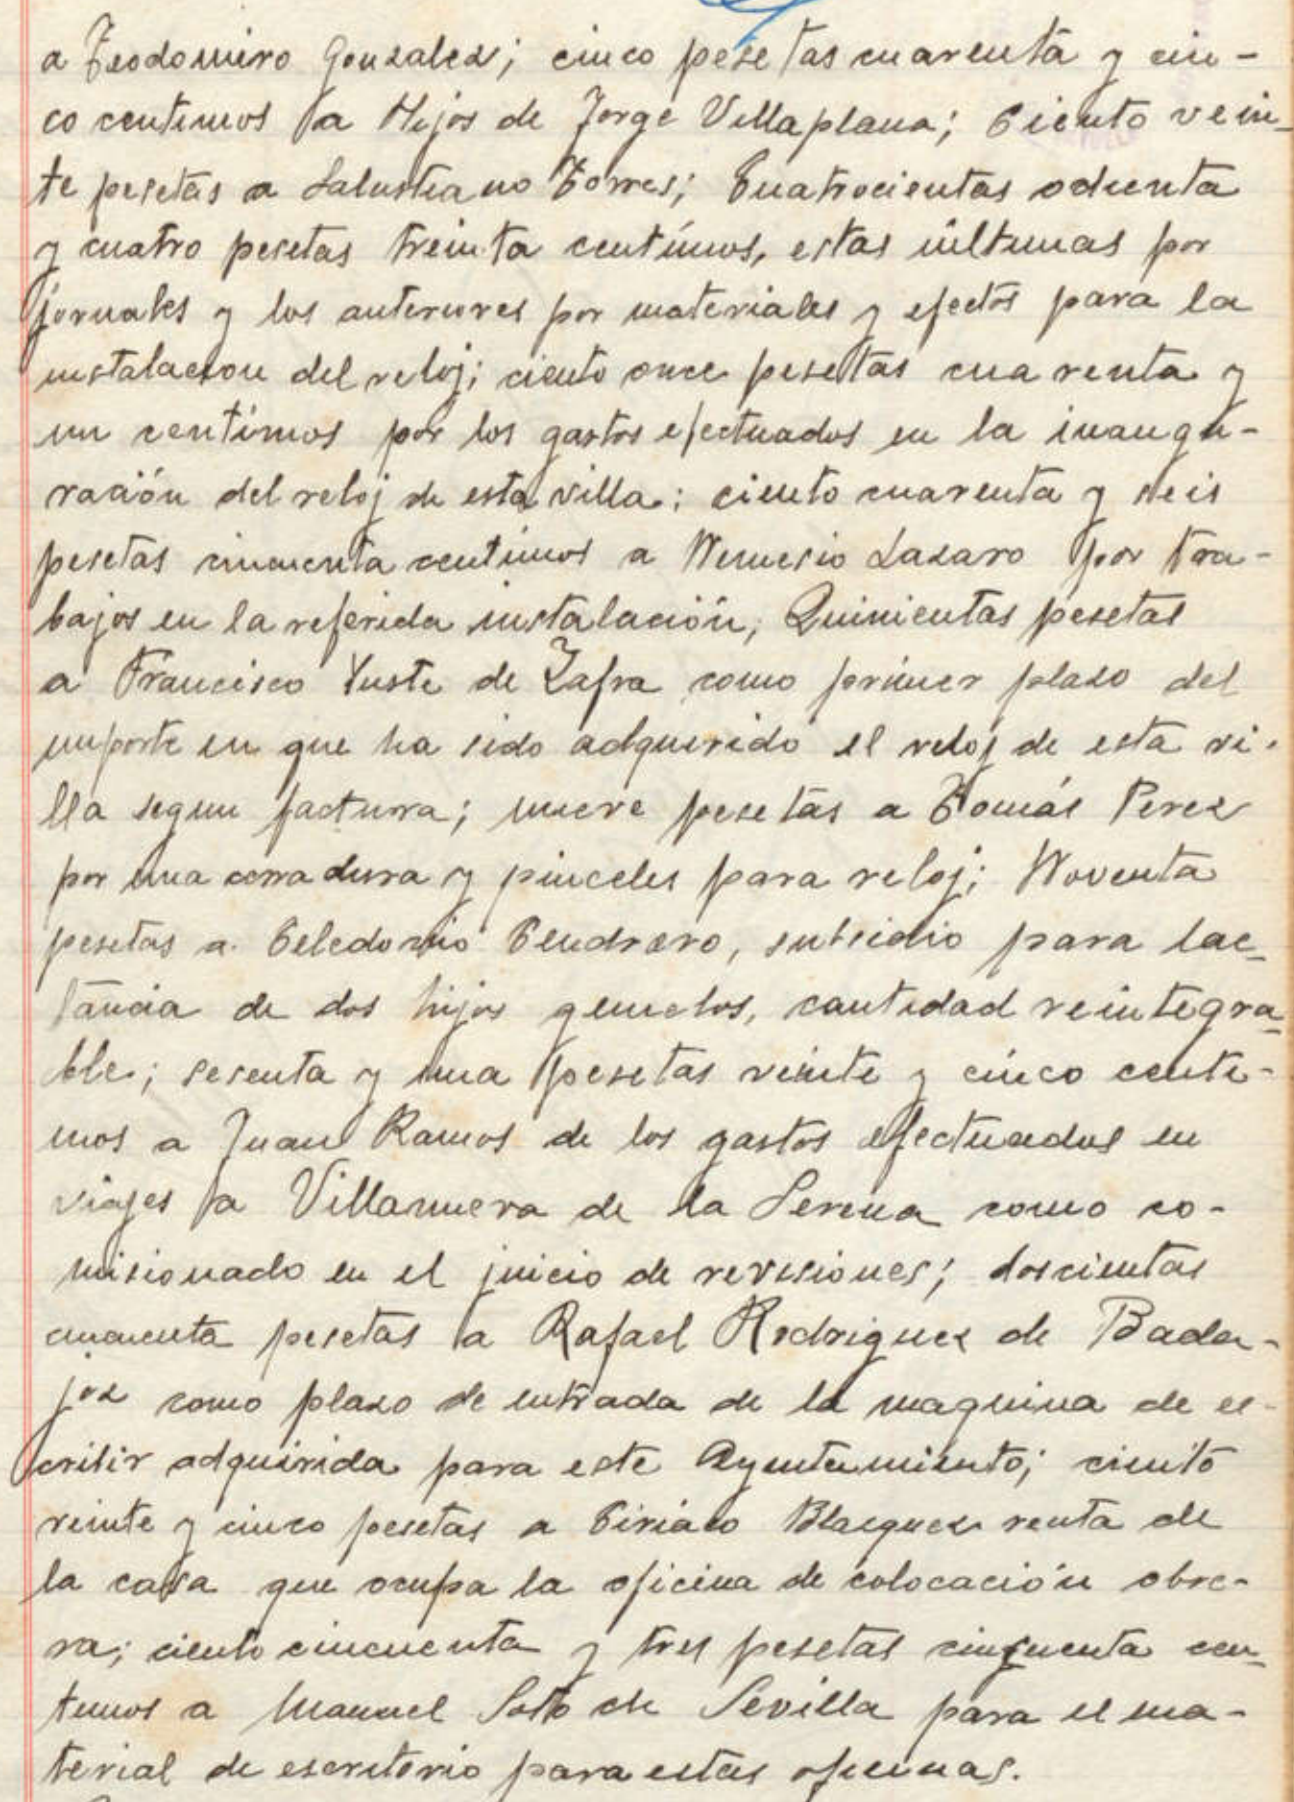 a Teodomiro Gonzalez; cinco pesetas cuarenta y cin-
co centimos a Hijos de Jorge Villaplana; Ciento vein-
te pesetas a Salustiano Torres; Cuatrocientas ochenta
y cuatro pesetas treinta centímos, estas últimas por
jornales y los anteriores por materiales y efectos para la
instalacion del reloj; ciento once pesetas cuarenta y
un centimos por los gastos efectuados en la inaugu-
ración del reloj de esta villa; ciento cuarenta y seis
pesetas cincuenta centimos a Nemesio Lazaro por tra-
bajos en la referida instalación; Quinientas pesetas
a Francisco Yuste de Zafra como primer plazo del
importe en que ha sido adquirido el reloj de esta vi-
lla segun factura; nueve pesetas a Tomás Perez
por una cerradura y pinceles para reloj; Noventa
pesetas a Celedonio Cendrero, subsidio para lac-
tancia de dos hijos gemelos, cantidad reintegra-
ble; sesenta y una pesetas veinte y cinco centi-
mos a Juan Ramos de los gastos efectuados en
viajes a Villanueva de la Serena como co-
misionado en el juicio de revisiones; doscientas
cincuenta pesetas a Rafael Rodriguez de Bada-
joz como plazo de entrada de la maquina de es-
cribir adquirida para este Ayuntamiento; ciento
veinte y cinco pesetas a Ciriaco Blazquez renta de
la casa que ocupa la oficina de colocación obre-
ra; ciento cincuenta y tres pesetas cincuenta cen-
timos a Manuel Soto de Sevilla para el ma-
terial de escritorio para estas oficinas.